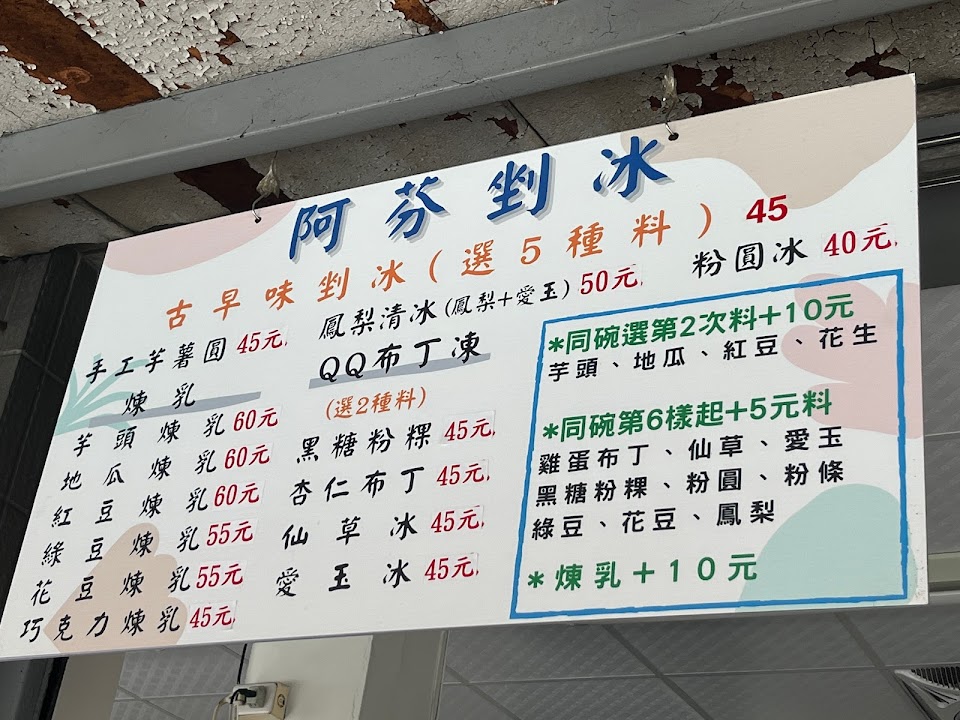 阿芬剉冰
古早味剉冰(選5種料) 45
手工芋薯圓 45元
煉乳
芋頭煉乳 60元
地瓜煉乳 60元
紅豆煉乳 60元
綠豆煉乳 55元
花豆煉乳 55元
巧克力煉乳 45元
鳳梨清冰(鳳梨+愛玉) 50元
QQ布丁凍
(選2種料)
黑糖粉粿 45元
杏仁布丁 45元
仙草冰 45元
愛玉冰 45元
粉圓冰 40元
*同碗選第2次料+10元
芋頭、地瓜、紅豆、花生
*同碗第6樣起+5元料
雞蛋布丁、仙草、愛玉
黑糖粉粿、粉圓、粉條
綠豆、花豆、鳳梨
*煉乳+10元